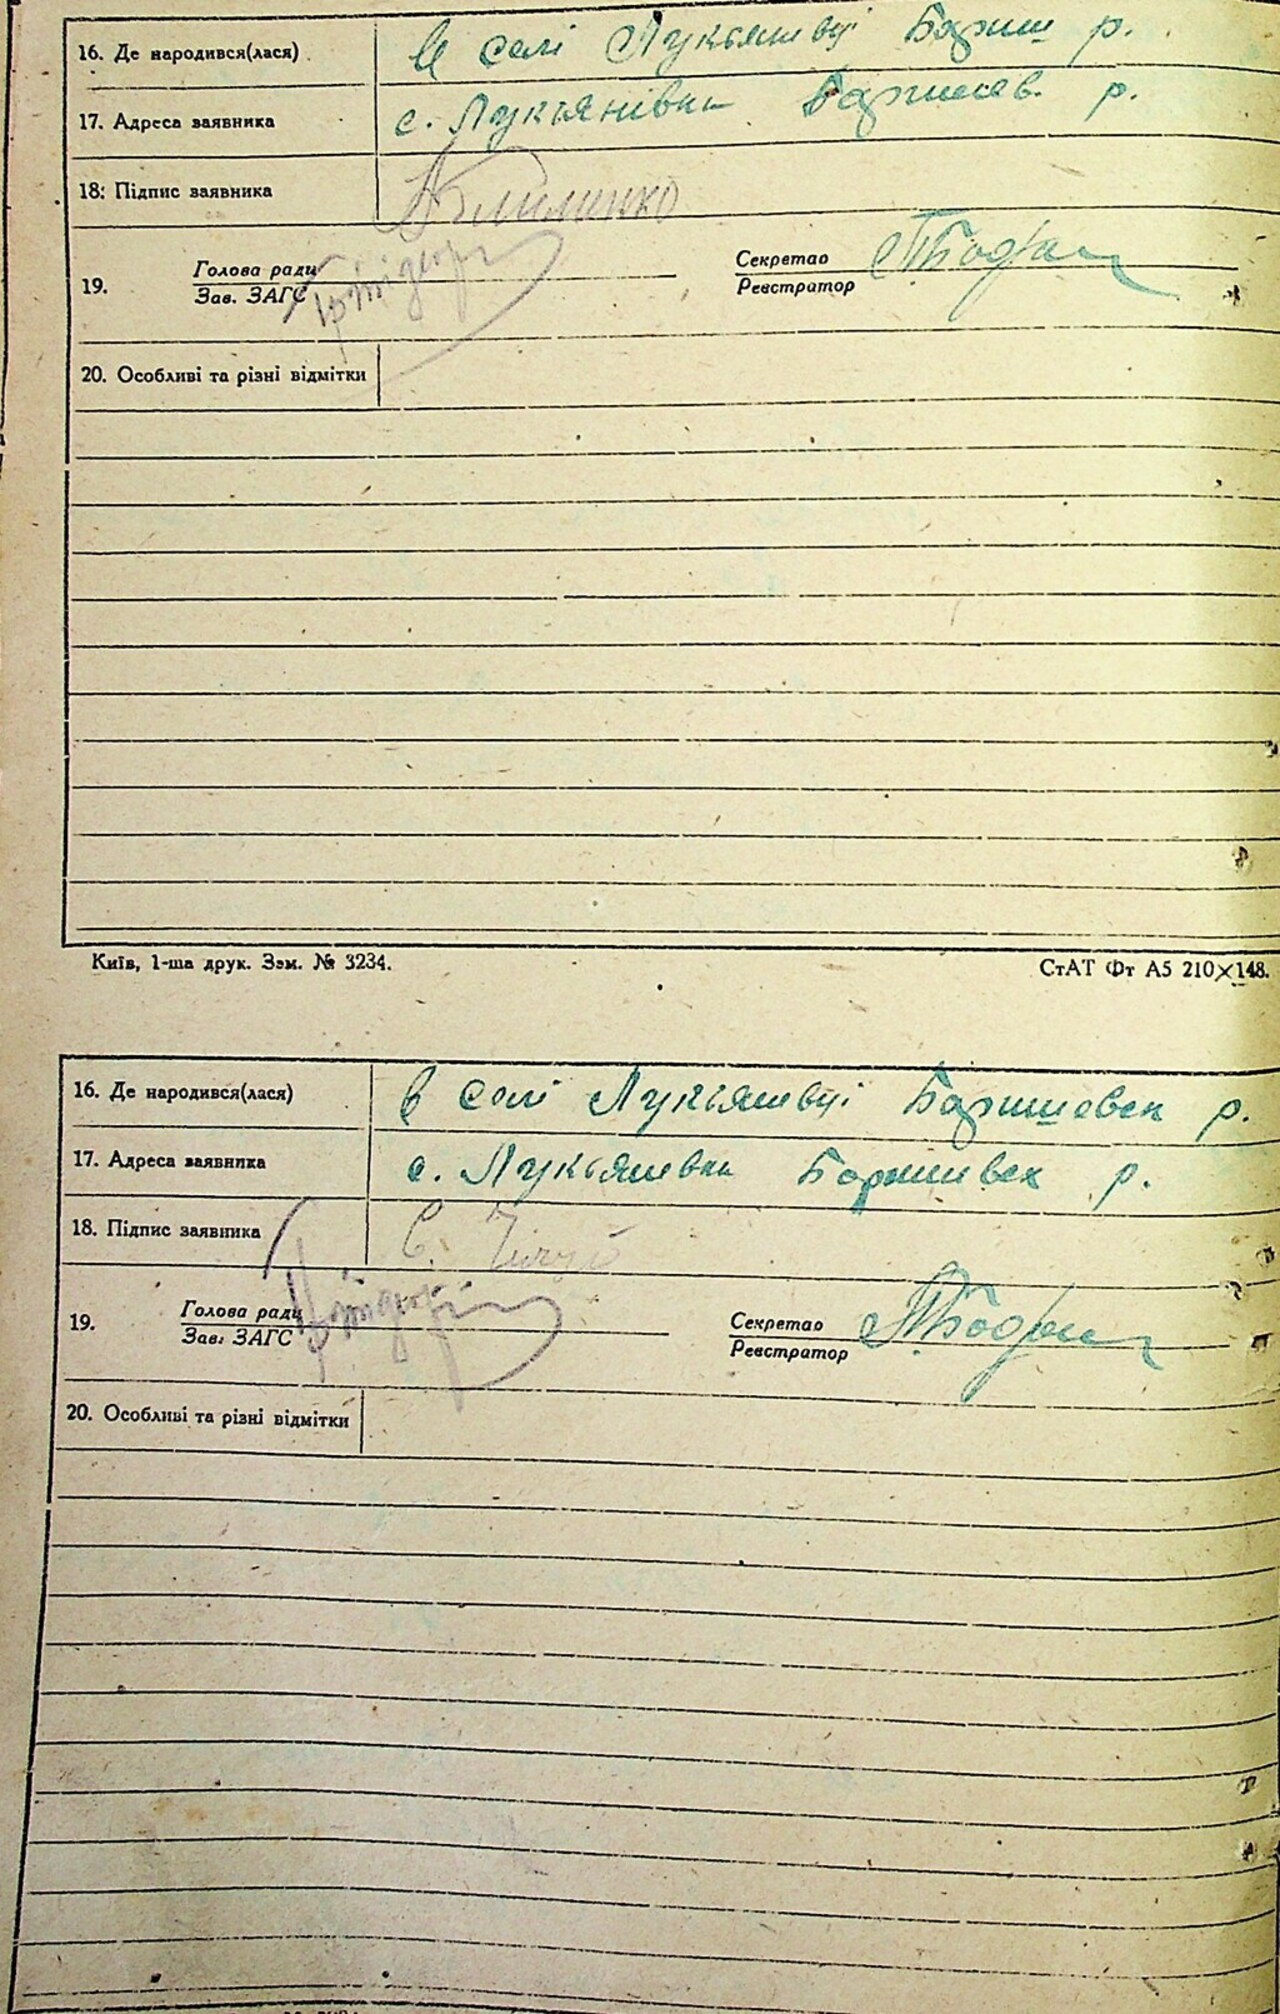 16. Де народився(лася) в селі Лукьянівці Бариш р.
17. Адреса заявника с. Лукьянівка Баришев. р.
18. Підпис заявника
Голова ради Секретар
19.
Зав. ЗАГС Реєстратор
20. Особливі та різні відмітки
Київ, 1-ша друк. Зам. № 3234. СтАТ Фт А5 210×148.
16. Де народився(лася) в селі Лукьянівці Баришевск р.
17. Адреса заявника с. Лукьянівка Баришевск р.
18. Підпис заявника С.
Голова ради Секретар
19.
Зав. ЗАГС Реєстратор
20. Особливі та різні відмітки